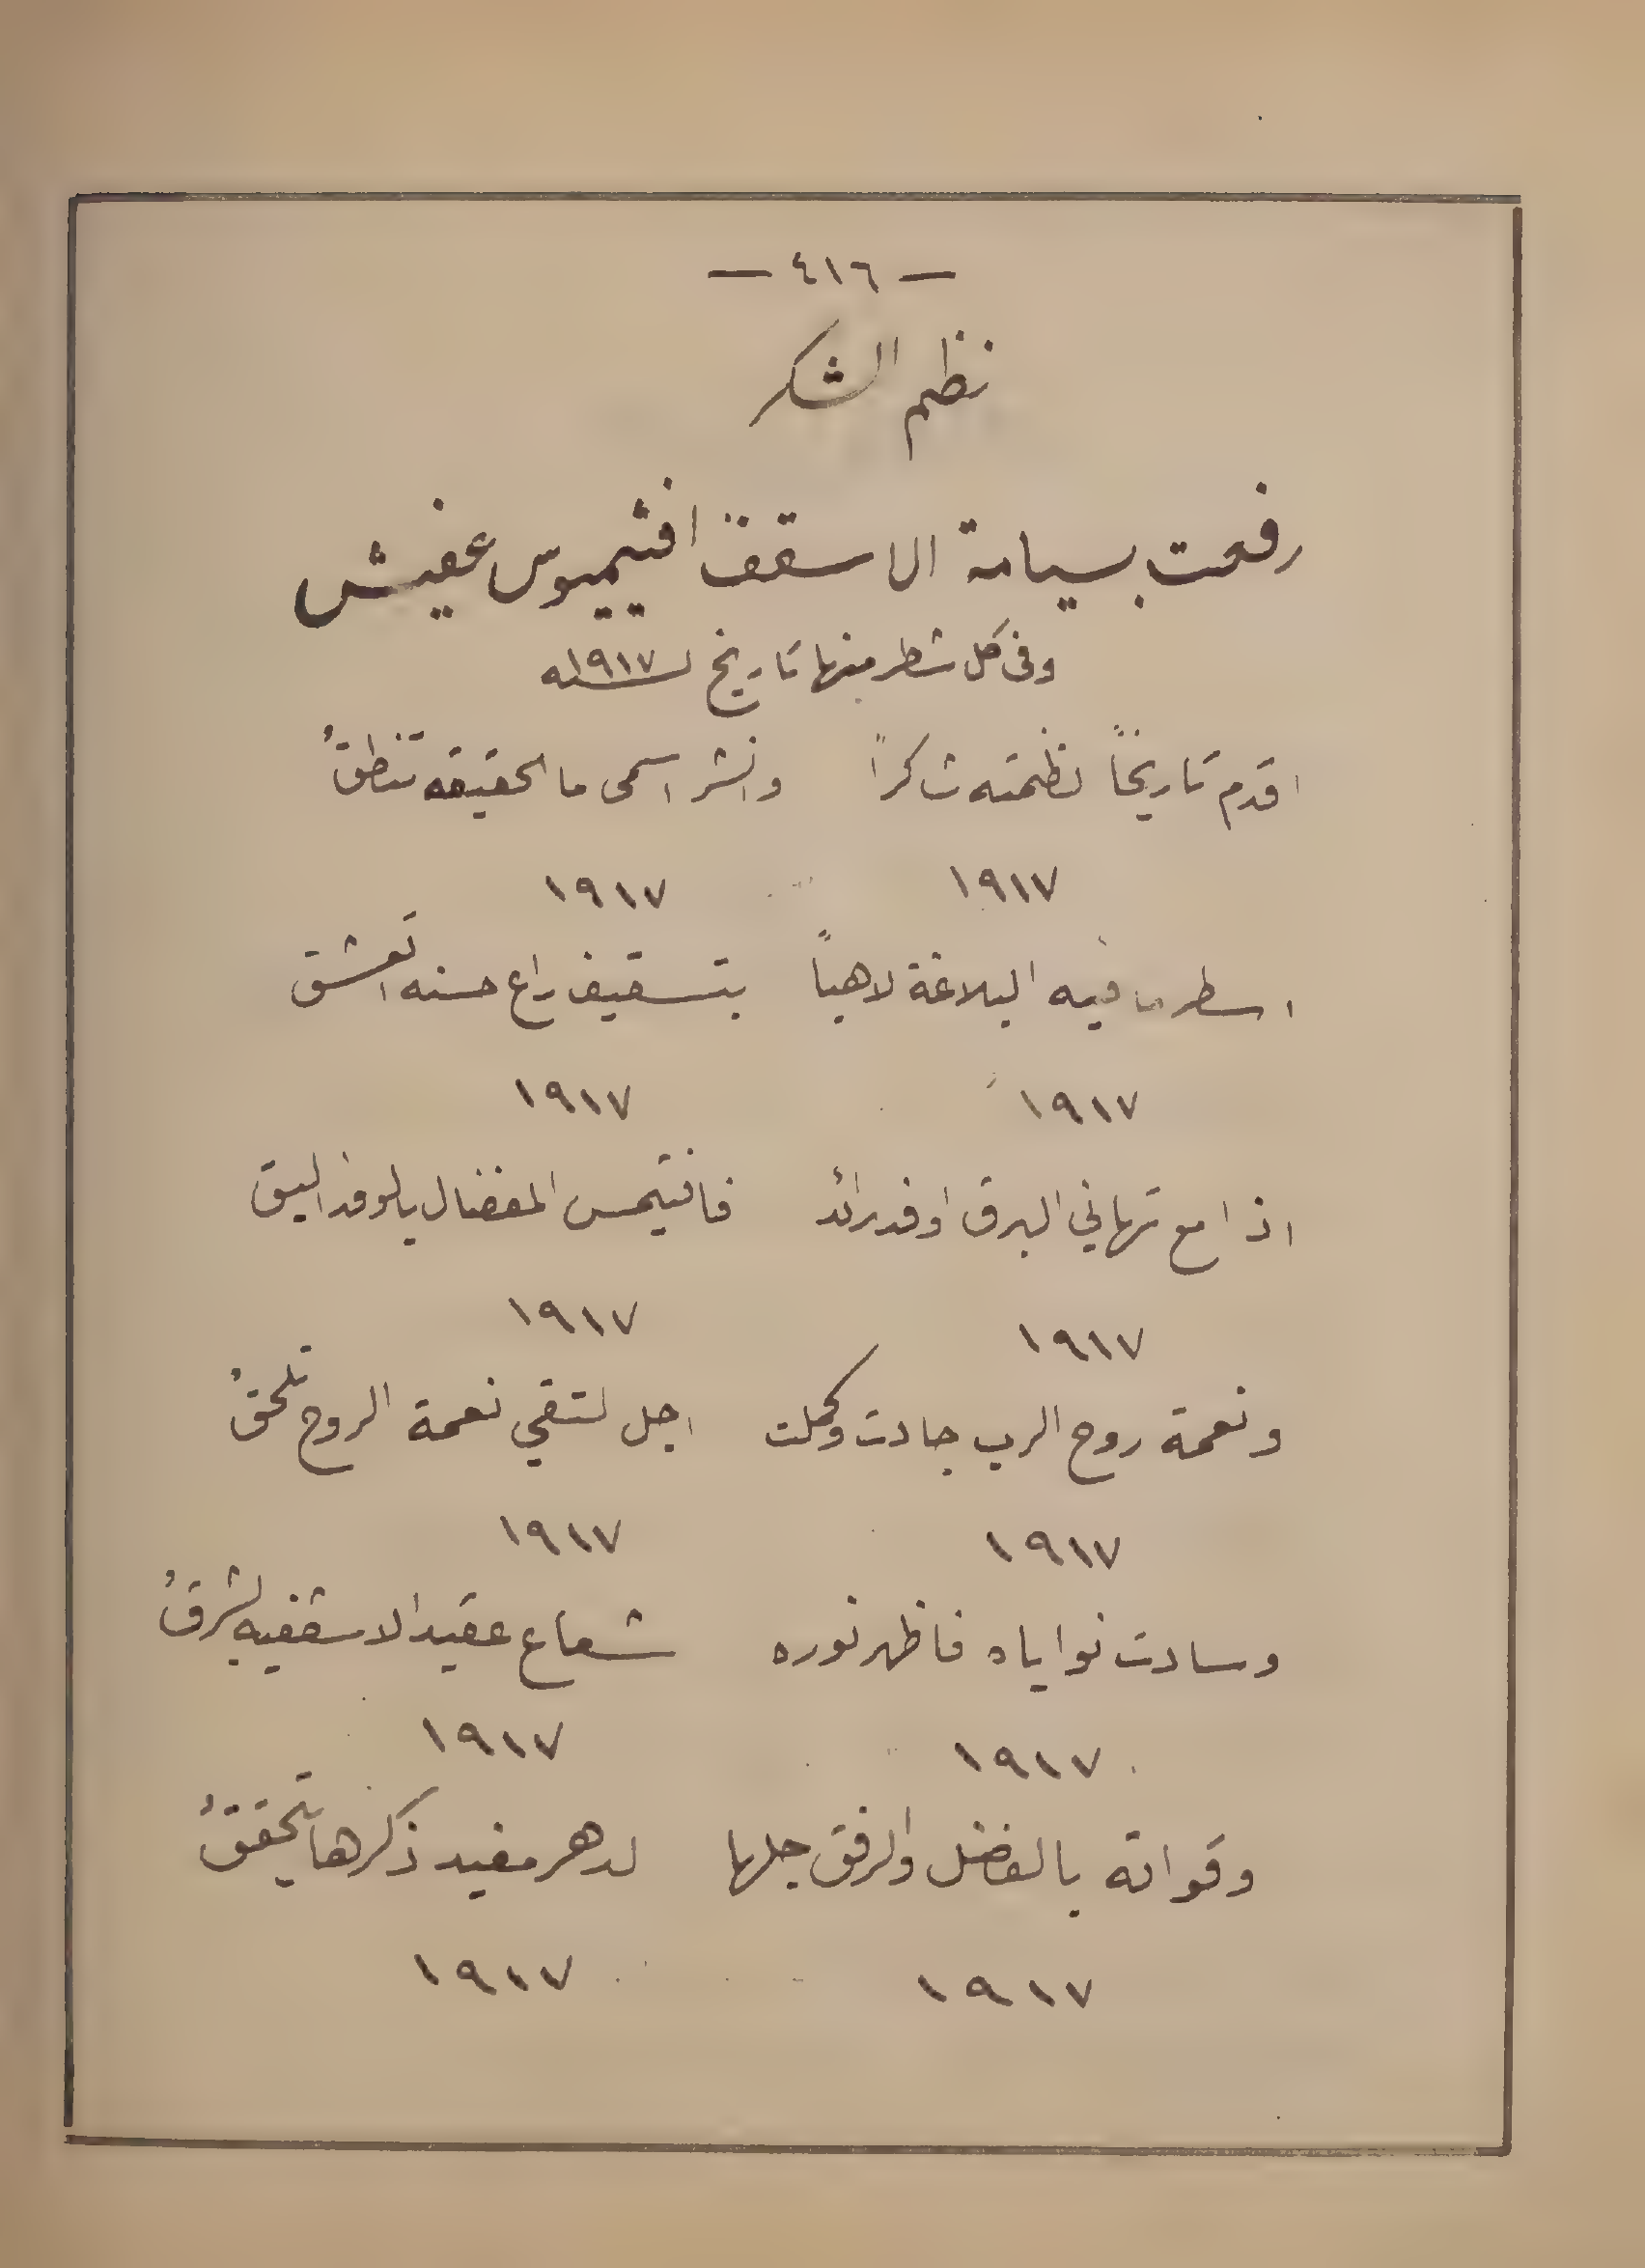 — ٤١٦ —
نظم الشكر
رفعت بسيامة الاسقف افثيميوس عفيش
وفى كل شطر منها تاريخ لسنه ١٩١٧
اقدم تاريخاً نظمته شاكراً    وانشر اسمى ما الحقيقه تنطقُ
١٩١٧    ١٩١٧
اسطر ما فيه البلاغة لاهباً    بتسقيف راع حسنه اتعشق
١٩١٧    ١٩١٧
اذا مع تهاني البرق اوفد رائد    فافتيمس المفضال بالوفد اليق
١٩١٧    ١٩١٧
ونعمة روح الرب جادت وكملت    اجل لتقي نعمة الروح تلحقُ
١٩١٧    ١٩١٧
وسادت نواياه فاظهر نوره    شعاع عقيد الاسقفيه يشرقُ
١٩١٧    ١٩١٧
وقواته بالفضل والرفق جلها    لدهر مفيد ذكرها يتحققُ
١٩١٧    ١٩١٧